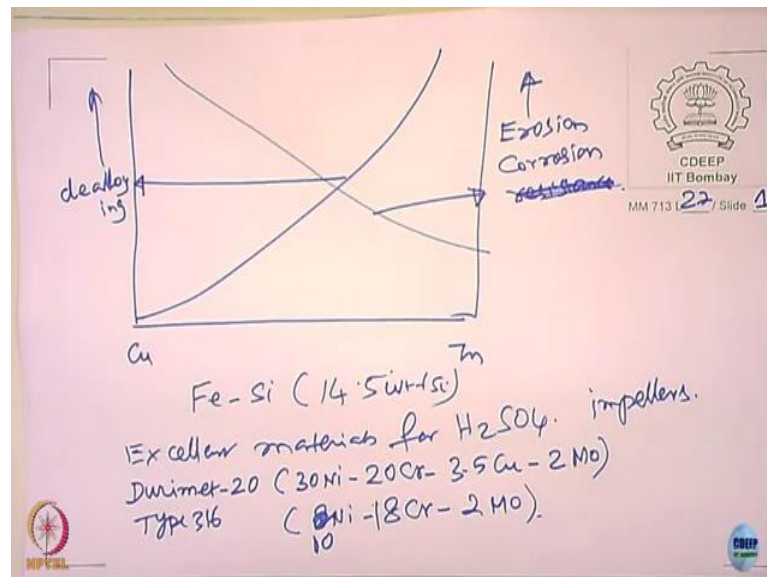 dealloy
ing
Erosion
Corrosion
CDEEP
IIT Bombay
MM 713 L 27 / Slide 1
Cu
Zn
Fe-Si (14.5 wt% Si)
Excellent materials for H2SO4. impellers.
Durimet-20 (30Ni-20Cr-3.5Cu-2MO)
Type 316 (Ni-18Cr-2MO).
10
NPTEL
CDEEP